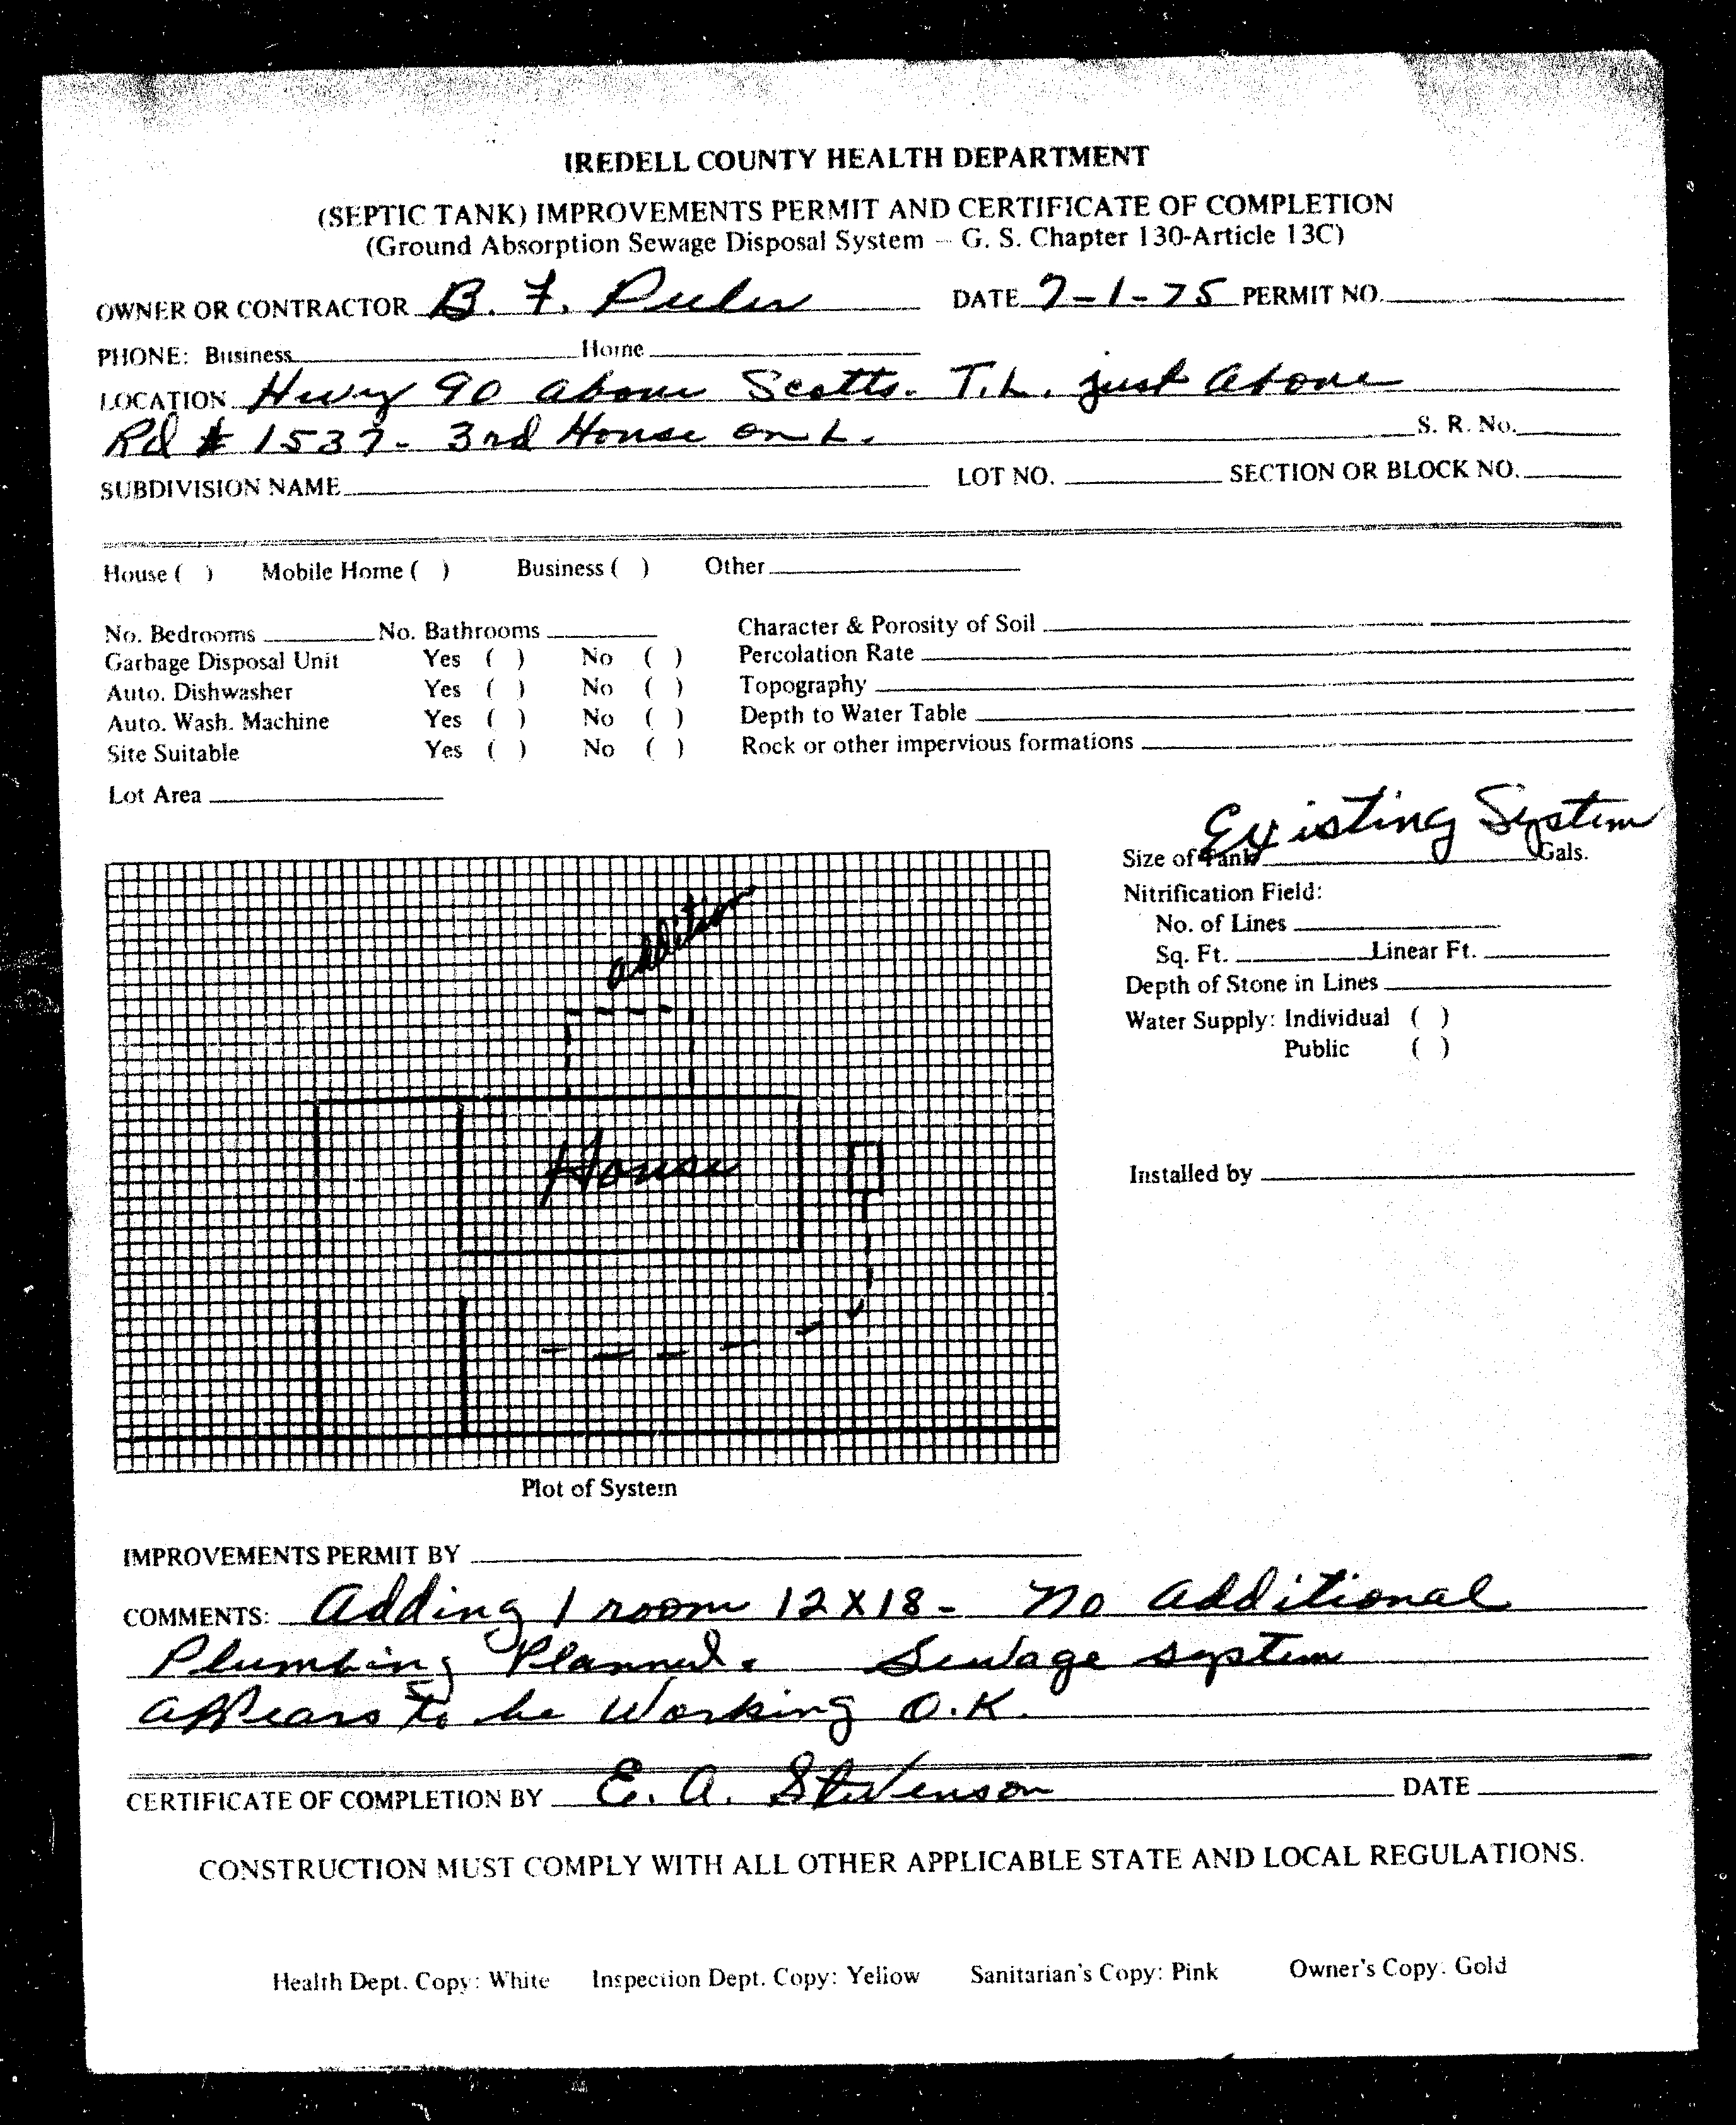 IREDELL COUNTY HEALTH DEPARTMENT
(SEPTIC TANK) IMPROVEMENTS PERMIT AND CERTIFICATE OF COMPLETION
(Ground Absorption Sewage Disposal System - G. S. Chapter 130-Article 13C)
OWNER OR CONTRACTOR B. F. DATE 7-1-75 PERMIT NO.
PHONE: Business Home
LOCATION Hwy 90 above Scotts. T.L. just above
Rd # 1537- 3rd House on L. S. R. No.
SUBDIVISION NAME LOT NO. SECTION OR BLOCK NO.
House ( ) Mobile Home ( ) Business ( ) Other
No. Bedrooms No. Bathrooms Character & Porosity of Soil
Garbage Disposal Unit Yes ( ) No ( ) Percolation Rate
Auto. Dishwasher Yes ( ) No ( ) Topography
Auto. Wash. Machine Yes ( ) No ( ) Depth to Water Table
Site Suitable Yes ( ) No ( ) Rock or other impervious formations
Lot Area
Existing System
Size of Tank Gals.
Nitrification Field:
No. of Lines
Sq. Ft. Linear Ft.
Depth of Stone in Lines
Water Supply: Individual ( )
Public ( )
Installed by
addition
House
Plot of System
IMPROVEMENTS PERMIT BY
COMMENTS: Adding 1 room 12 X 18 - No additional
Plumbing Planned. Sewage system
appears to be working O.K.
CERTIFICATE OF COMPLETION BY E. A. Stevenson DATE
CONSTRUCTION MUST COMPLY WITH ALL OTHER APPLICABLE STATE AND LOCAL REGULATIONS.
Health Dept. Copy: White Inspection Dept. Copy: Yellow Sanitarian's Copy: Pink Owner's Copy: Gold